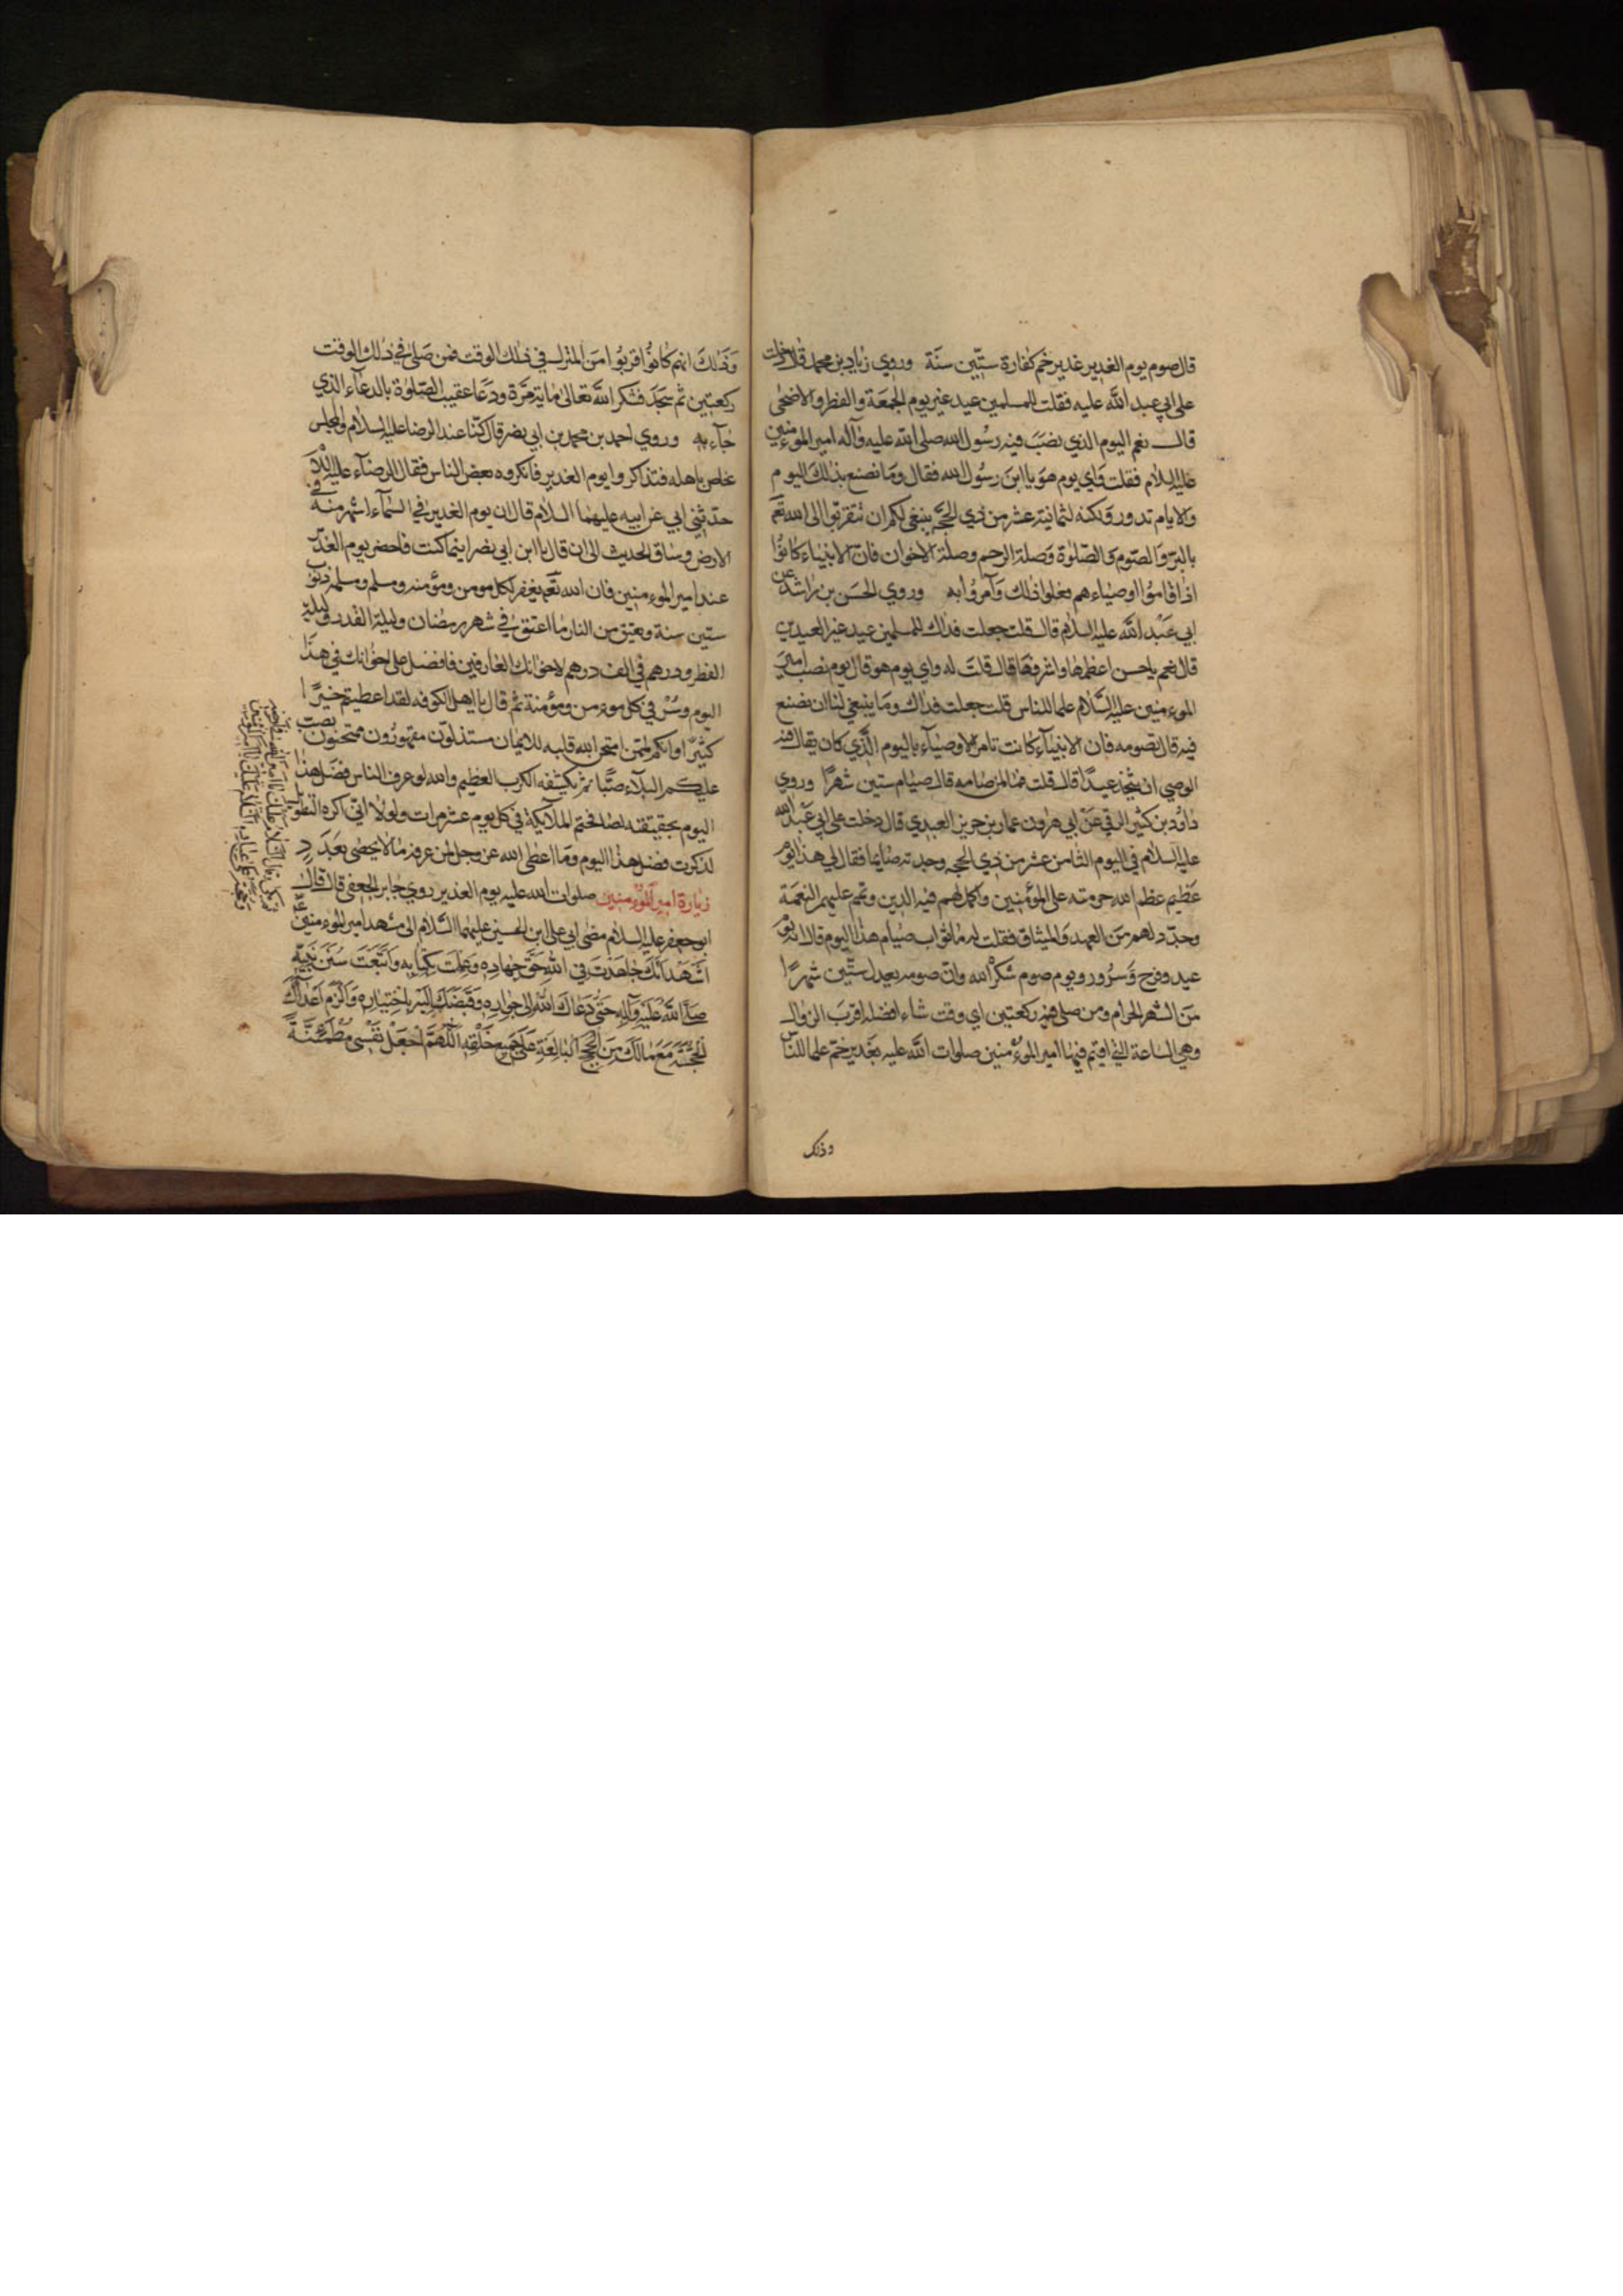 قال صوم يوم الغدير غدير خم كفارة ستين سنة وروي زياد بن محمد قال دخلت
على ابي عبد الله عليه فقلت للمسلمين عيد غير يوم الجمعة والفطر والاضحى
قال نعم اليوم الذي نصب فيه رسول الله صلى الله عليه وآله امير الموءمنين
عليه السلام فقلت واي يوم هو يا ابن رسول الله فقال وما نصنع بذلك اليوم
والايام تدور ولكنه لثمانية عشر من ذي الحجة ينبغي لكم ان تتقربوا الى الله تعم
بالبر والصوم والصلوة وصلة الرحم وصلة الاخوان فان الانبياء كانوا
اذا اقاموا اوصياءهم فعلوا ذلك وآمروا به وروي الحسن بن راشد عن
ابي عبد الله عليه السلام قال قلت جعلت فداك للمسلمين عيد غير العيدين
قال نعم يا حسن اعظمها واشرفها قال قلت له واي يوم هو قال يوم نصب امير
الموءمنين عليه السلام علما للناس قلت جعلت فداك وما ينبغي لنا ان نصنع
فيه قال تصومه فان الانبيآء كانت تامر الاوصيآء باليوم الذي كان يقال فيه
الوصي ان يتخذ عيدا قال قلت فما لمن صامه قال صيام ستين شهرا وروي
داود بن كثير الرقي عن ابي هرون عمار بن حريز العبدي قال دخلت على ابي عبد الله
عليه السلام في اليوم الثامن عشر من ذي الحجه وجدته صايما فقال لي هذا يوم
عظيم عظم الله حرمته على المؤمنين واكمل لهم فيه الدين وتمم عليهم النعمة
وجدد لهم من العهد والميثاق فقلت له ما ثواب صيام هذا اليوم قال انه يوم
عيد وفرح وسرور ويوم صوم شكر الله وان صومه يعدل ستين شهرا
من الشهر الحرام ومن صلى فيه ركعتين اي وقت شاء افضله اقرب الزوال
وهي الساعة التي اقيم فيها امير الموءمنين صلوات الله عليه بغدير خم علما للناس
وذلك
وذلك انهم كانوا قربوا من المنزل في ذلك الوقت فمن صلى في ذلك الوقت
ركعتين ثم سجد فشكر الله تعالى ماية مرة ودعا عقيب الصلوة بالدعآء الذي
جآء به وروي احمد بن محمد بن ابي نصر قال كنا عند الرضا عليه السلام والمجلس
غاص باهله فتذاكروا يوم الغدير فانكروه بعض الناس فقال الرضاء عليه السلام
حدثني ابي عن ابيه عليهما السلام قال ان يوم الغدير في السمآء اشهر منه في
الارض وساق الحديث الى ان قال يا ابن ابي نصر اينما كنت فاحضر يوم الغدير
عند امير الموءمنين فان الله تعم يغفر لكل مومن ومؤمنه ومسلم ومسلمه ذنوب
ستين سنة ويعتق من النار ما اعتق في شهر رمضان وليلة القدر وليلة
الفطر ودرهم في الف درهم لاخوانك العارفين فافضل على اخوانك في هذا
اليوم وسُرّ في كل موءمن ومؤمنة ثم قال يا اهل الكوفه لقد اعطيتم خيرا
كثيرا وانكم لممن امتحن الله قلبه للايمان مستذلون مقهورون ممتحنون يصب
عليكم البلاء صبا ثم يكشفه الكرب العظيم والله لو عرف الناس فضل هذا
اليوم بحقيقته لصافحتهم الملآيكة في كل يوم عشر مرات ولولا اني اكره التطويل
لذكرت فضل هذا اليوم وما اعطى الله عز وجل لمن عرفه ما لا يحصى بعدد
زيارة امير الموءمنين صلوات الله عليه يوم الغدير روي جابر الجعفي قال قال
ابو جعفر عليه السلام مضى ابي علي ابن الحسين عليهما السلام الى مشهد امير الموءمنين
اشهد انك جاهدت في الله حق جهاده وعملت بكتابه واتبعت سنن نبيه
صلى الله عليه وآله حتى دعاك الله الى جواره وقبضك اليه باختياره والزم اعداءك
الحجة مع مالك من الحجج البالغة على جميع خلقه اللهم اجعل نفسي مطمئنة